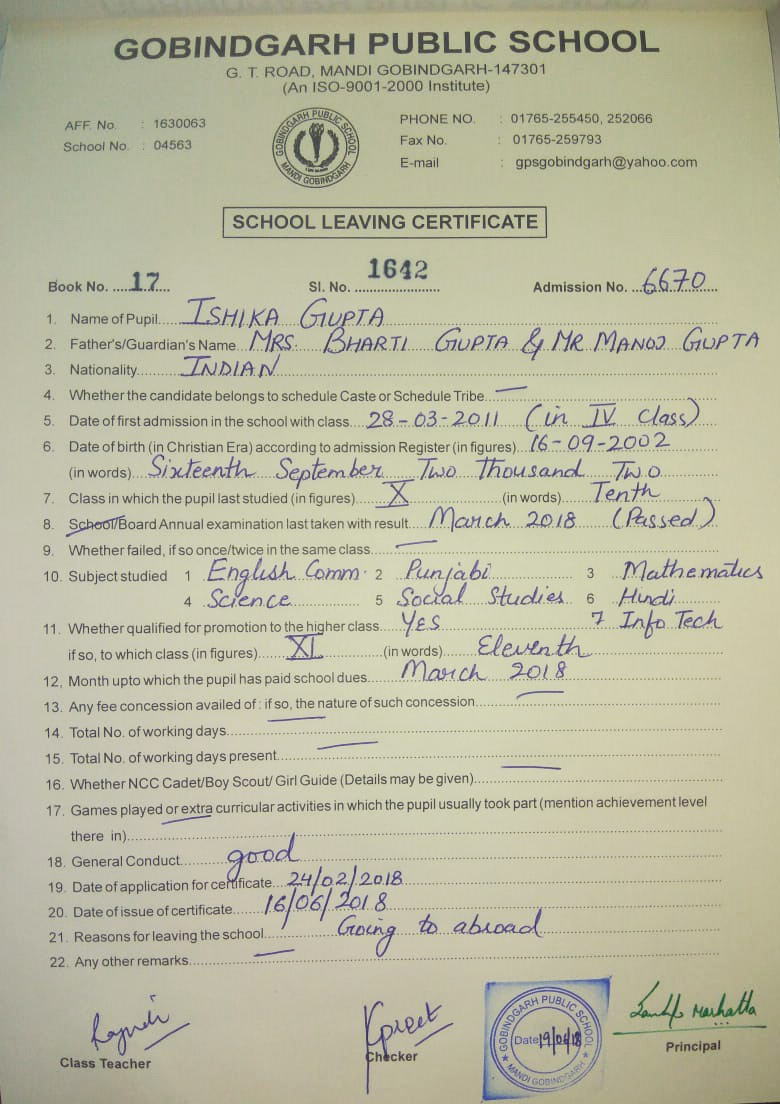 GOBINDGARH PUBLIC SCHOOL
G. T. ROAD, MANDI GOBINDGARH-147301
(An ISO-9001-2000 Institute)
AFF. No. : 1630063
School No. : 04563
GOBINDGARH PUBLIC SCHOOL
MANDI GOBINDGARH
PHONE NO. : 01765-255450, 252066
Fax No. : 01765-259793
E-mail : gpsgobindgarh@yahoo.com
SCHOOL LEAVING CERTIFICATE
Book No. .....17... Sl. No. 1642 Admission No. ...6670
1. Name of Pupil....ISHIKA GUPTA
2. Father's/Guardian's Name MRS. BHARTI GUPTA & MR MANOJ GUPTA
3. Nationality..........INDIAN
4. Whether the candidate belongs to schedule Caste or Schedule Tribe... —
5. Date of first admission in the school with class....28-03-2011 (in IV Class)
6. Date of birth (in Christian Era) according to admission Register (in figures) 16-09-2002
(in words) Sixteenth September Two Thousand Two
7. Class in which the pupil last studied (in figures) X (in words) Tenth
8. School/Board Annual examination last taken with result March 2018 (Passed)
9. Whether failed, if so once/twice in the same class —
10. Subject studied 1 English Comm. 2 Punjabi 3 Mathematics
4 Science 5 Social Studies 6 Hindi
11. Whether qualified for promotion to the higher class YES 7 Info Tech
if so, to which class (in figures) XI (in words) Eleventh
12, Month upto which the pupil has paid school dues March 2018
13. Any fee concession availed of : if so, the nature of such concession —
14. Total No. of working days —
15. Total No. of working days present —
16. Whether NCC Cadet/Boy Scout/ Girl Guide (Details may be given) —
17. Games played or extra curricular activities in which the pupil usually took part (mention achievement level
there in) —
18. General Conduct good
19. Date of application for certificate 24/02/2018
20. Date of issue of certificate 16/06/2018
21. Reasons for leaving the school Going to abroad
22. Any other remarks —
Kpreet
GOBINDGARH PUBLIC SCHOOL
Date 19/06/18
MANDI GOBINDGARH
Class Teacher Checker Principal